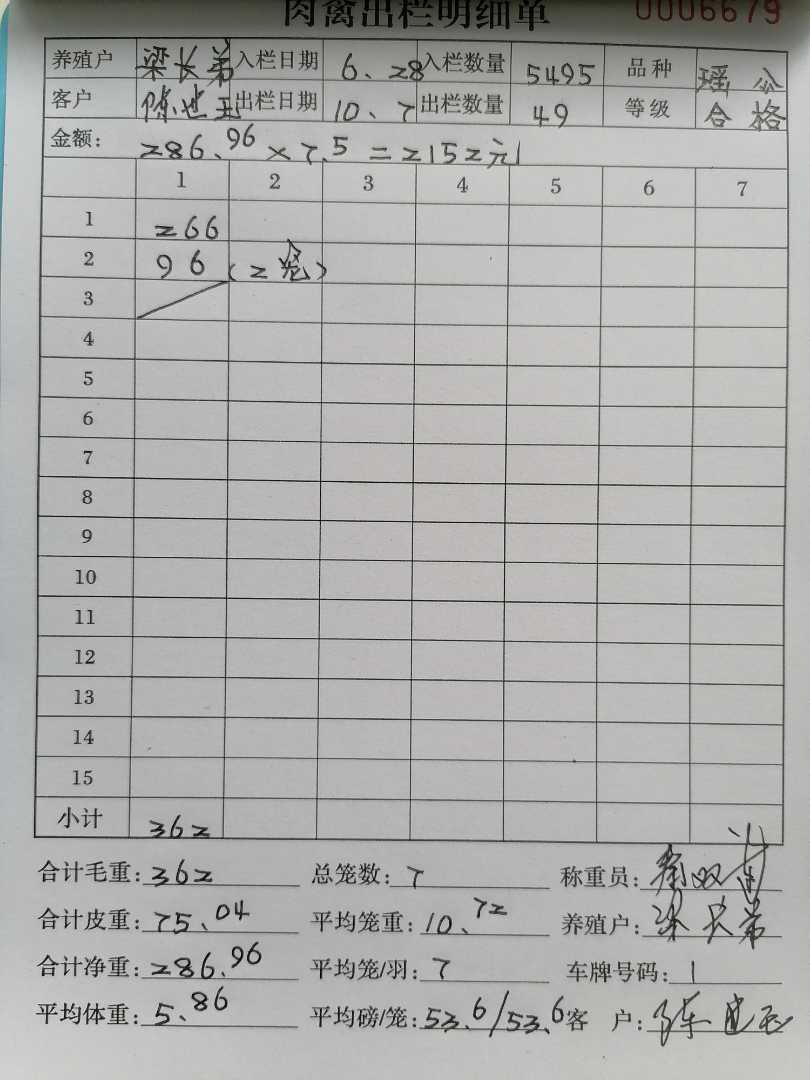 肉禽出栏明细单 0006679
养殖户 梁长弟 入栏日期 6、28 入栏数量 5495 品种 瑶公
客户 陈世玉 出栏日期 10、7 出栏数量 49 等级 合格
金额: 286.96 × 7.5 = 2152元
1 2 3 4 5 6 7
1 266
2 96 (2笼)
3
4
5
6
7
8
9
10
11
12
13
14
15
小计 362
合计毛重: 362 总笼数: 7 称重员:
合计皮重: 75、04 平均笼重: 10、72 养殖户: 梁长弟
合计净重: 286.96 平均笼/羽: 7 车牌号码: 1
平均体重: 5、86 平均磅/笼: 53.6/53.6 客 户: